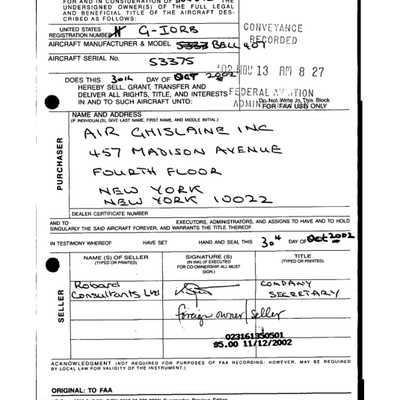 FOR AND IN CONSIDERATION OF
UNDERSIGNED OWNER(S) OF THE FULL LEGAL
AND BENEFICIAL TITLE OF THE AIRCRAFT DES-
CRIBED AS FOLLOWS:
UNITED STATES
REGISTRATION NUMBER N G-IORB
CONVEYANCE
RECORDED
AIRCRAFT MANUFACTURER & MODEL
BELL 407
AIRCRAFT SERIAL No.
53375
'02 NOV 13 AM 8 27
DOES THIS 30th DAY OF OCT 2002
HEREBY SELL, GRANT, TRANSFER AND
DELIVER ALL RIGHTS, TITLE, AND INTERESTS
IN AND TO SUCH AIRCRAFT UNTO:
FEDERAL AVIATION
Do Not Write In This Block
FOR FAA USE ONLY
PURCHASER
NAME AND ADDRESS
(IF INDIVIDUAL(S), GIVE LAST NAME, FIRST NAME, AND MIDDLE INITIAL.)
AIR GHISLAINE INC
457 MADISON AVENUE
FOURTH FLOOR
NEW YORK
NEW YORK 10022
DEALER CERTIFICATE NUMBER
AND TO EXECUTORS, ADMINISTRATORS, AND ASSIGNS TO HAVE AND TO HOLD
SINGULARLY THE SAID AIRCRAFT FOREVER, AND WARRANTS THE TITLE THEREOF
IN TESTIMONY WHEREOF HAVE SET HAND AND SEAL THIS 30th DAY OF Oct 2002
SELLER
NAME (S) OF SELLER
(TYPED OR PRINTED)
SIGNATURE (S)
(IN INK) (IF EXECUTED
FOR CO-OWNERSHIP, ALL MUST
SIGN.)
TITLE
(TYPED OR PRINTED)
Robard
Consultants Ltd
COMPANY
SECRETARY
foreign owner/seller
023161350501
$5.00 11/12/2002
ACKNOWLEDGMENT (NOT REQUIRED FOR PURPOSES OF FAA RECORDING: HOWEVER, MAY BE REQUIRED
BY LOCAL LAW FOR VALIDITY OF THE INSTRUMENT.)
ORIGINAL: TO FAA